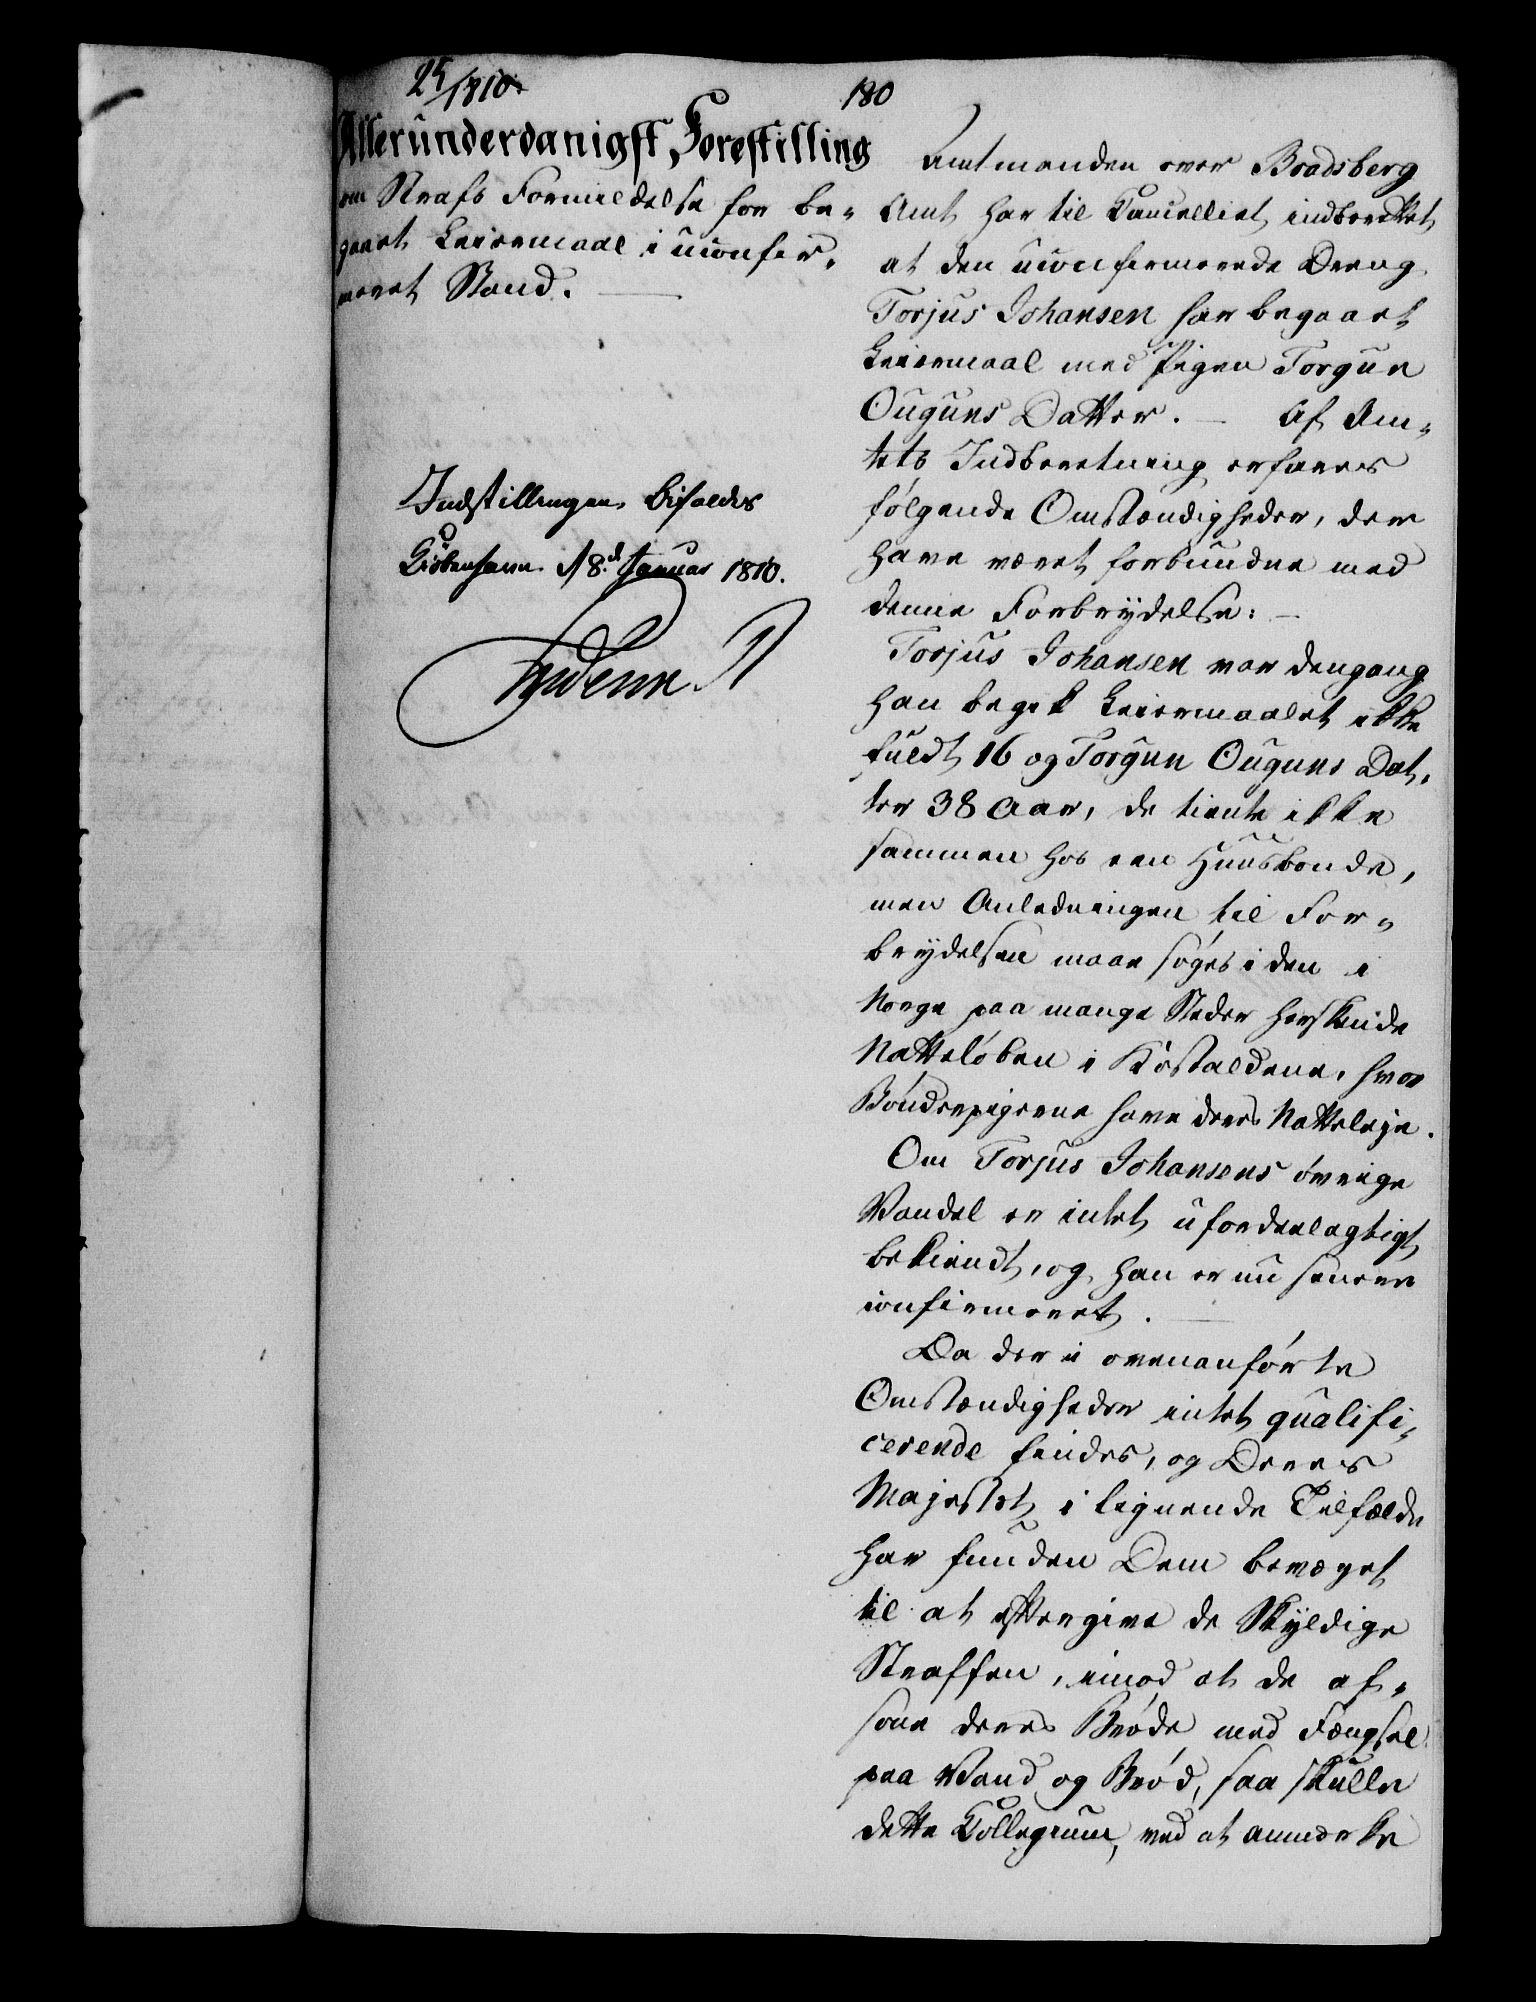 25/1810.
180
Allerunderdanigst Forestilling
om Straffs Formildelse for be-
gaaet Leiermaal i uconfir-
meret Stand.
Indstillingen bifaldes
Kiöbenhavn d 8.d Januar 1810.
Frederik R
Amtmanden over Bradsberg
Amt har til Cancelliet indberettet
at den uconfirmerede Dreng
Torjus Johansen har begaaet
Leiermaal med Pigen Torgun
Ouguns Datter. — Af Am-
tets Indberetning erfares
følgende Omstændigheder, der
have været forbundne med
denne Forbrydelse: —
Torjus Johansen var dengang
han begik Leiermaalet ikke
fuldt 16 og Torgun Ouguns Dat-
ter 38 Aar, de tiente ikke
sammen hos een Huusbonde,
men Anledningen til For-
brydelsen maae søges i den i
Norge paa mange Steder herskende
Natteløben i Kostaldene, hvor
Bøndepigerne have deres Natteleje.
Om Torjus Johansens øvrige
Vandel er intet ufordeelagtigt
bekiendt, og han er nu senere
confirmeret. —
Da der i ovenanførte
Omstændigheder intet qualifi-
cerende findes, og Deres
Majestet i lignende Tilfælde
har funden Dem bevæget
til at eftergive de Skyldige
Straffen, imod at de af-
sone deres Brøde med Fængsel
paa Vand og Brød, saa skulle
dette Collegium, ved at anmærke